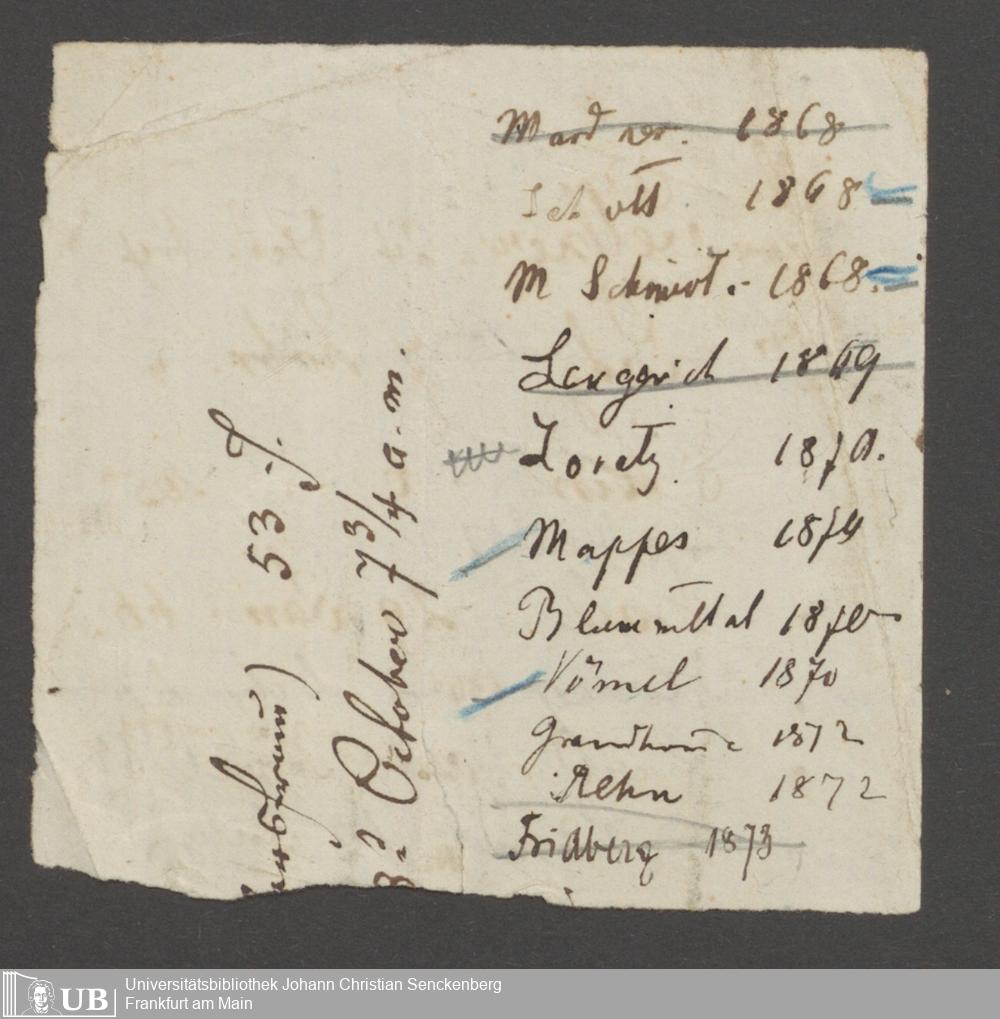 1868
Schott 1868
M Schmidt. - 1868.
1869
Loretz 1870.
Mappes 1870
Blumenthal 1870
Vömel 1870
Grandhomme 1872
Rehn 1872
Fridberg 1873
53 J.
October 7 3/4 a. m.
UB
Universitätsbibliothek Johann Christian Senckenberg
Frankfurt am Main